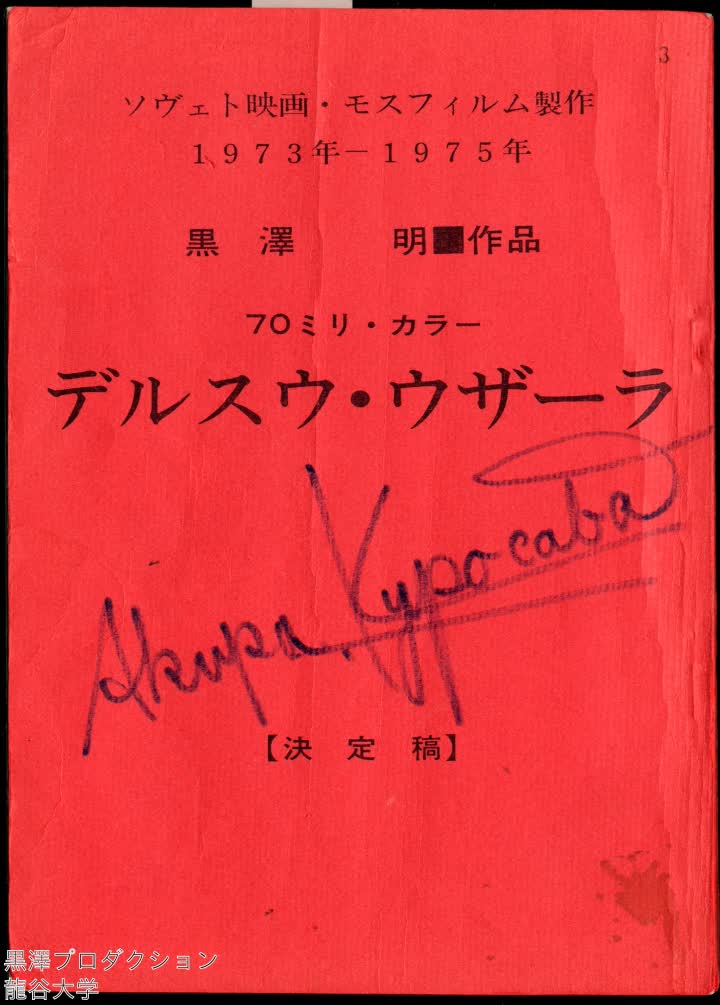 3
ソヴェト映画・モスフィルム製作
1973年－1975年
黒澤 明■作品
70ミリ・カラー
デルスウ・ウザーラ
Акира Куросава
【決定稿】
黒澤プロダクション
龍谷大学